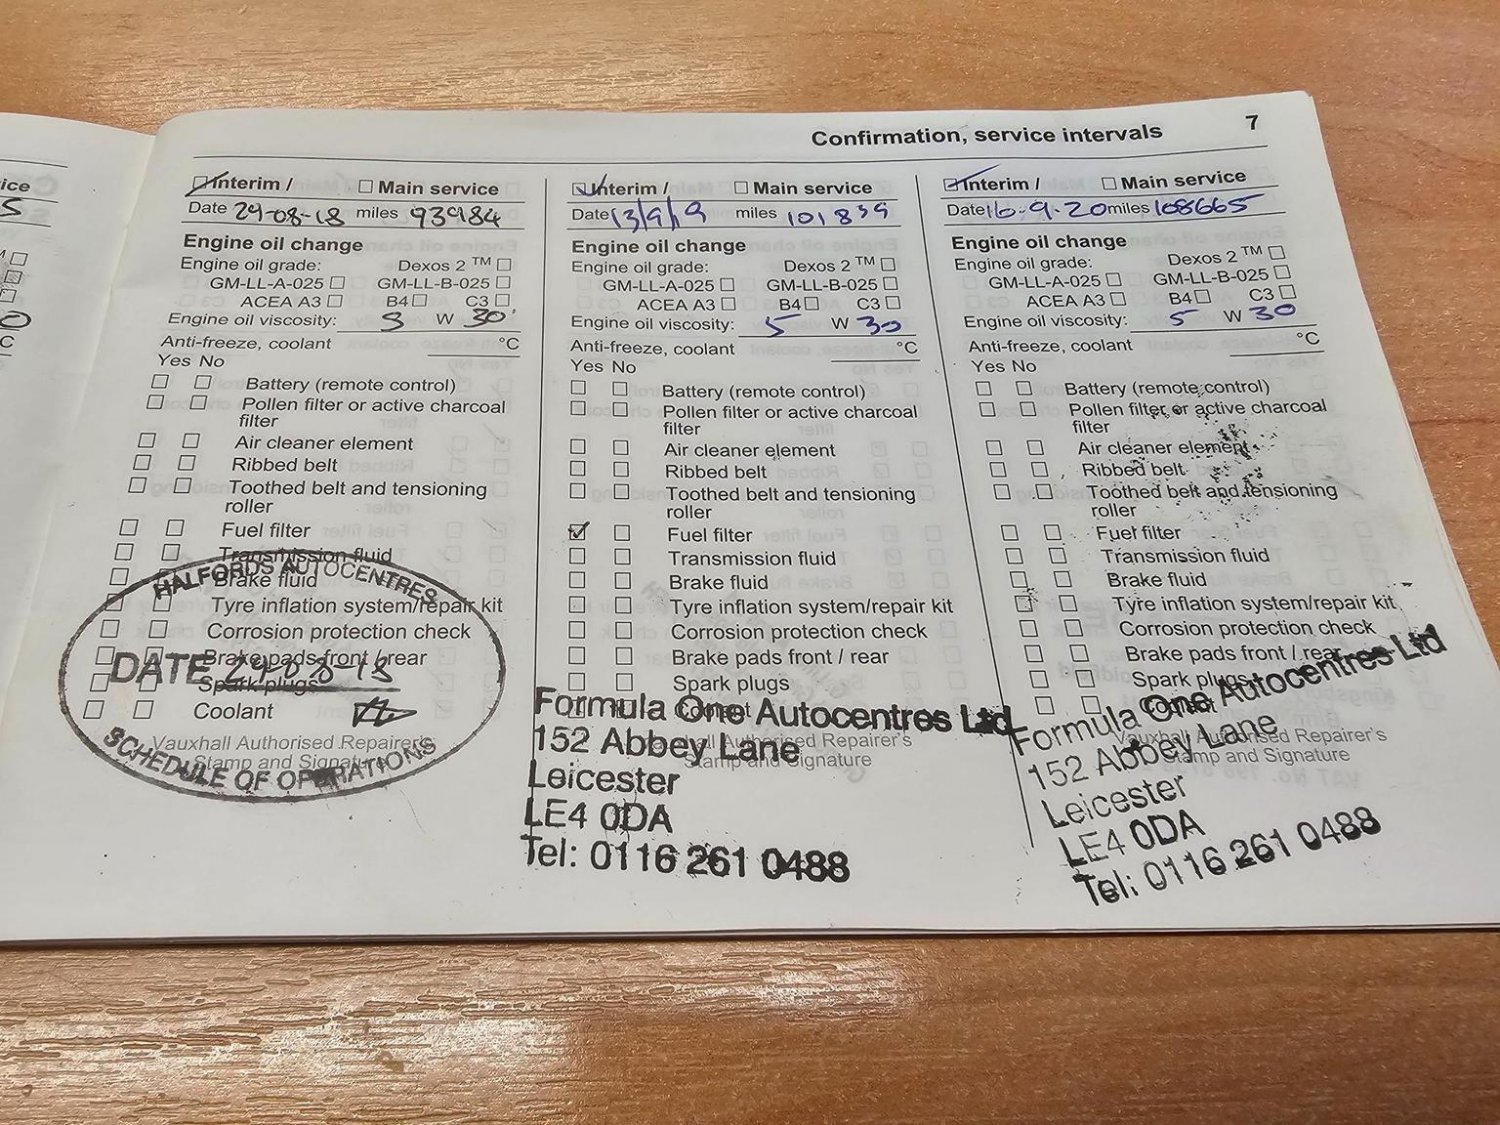 Confirmation, service intervals 7
ice
S
C
Interim / Main service
Date 29-08-18 miles 93984
Engine oil change
Engine oil grade: Dexos 2 ™
GM-LL-A-025 GM-LL-B-025
ACEA A3 B4 C3
Engine oil viscosity: 5 W 30
Anti-freeze, coolant °C
Yes No
Battery (remote control)
Pollen filter or active charcoal
filter
Air cleaner element
Ribbed belt
Toothed belt and tensioning
roller
Fuel filter
Transmission fluid
Brake fluid
Tyre inflation system/repair kit
Corrosion protection check
Brake pads front / rear
Spark plugs
Coolant
Vauxhall Authorised Repairer's
Stamp and Signature
HALFORDS AUTOCENTRES
DATE 29-08-18
SCHEDULE OF OPERATIONS
Interim / Main service
Date 13/9/19 miles 101839
Engine oil change
Engine oil grade: Dexos 2 ™
GM-LL-A-025 GM-LL-B-025
ACEA A3 B4 C3
Engine oil viscosity: 5 W 30
Anti-freeze, coolant °C
Yes No
Battery (remote control)
Pollen filter or active charcoal
filter
Air cleaner element
Ribbed belt
Toothed belt and tensioning
roller
Fuel filter
Transmission fluid
Brake fluid
Tyre inflation system/repair kit
Corrosion protection check
Brake pads front / rear
Spark plugs
Coolant
Vauxhall Authorised Repairer's
Stamp and Signature
Formula One Autocentres Ltd
152 Abbey Lane
Leicester
LE4 0DA
Tel: 0116 261 0488
Interim / Main service
Date 16-9-20 miles 108665
Engine oil change
Engine oil grade: Dexos 2 ™
GM-LL-A-025 GM-LL-B-025
ACEA A3 B4 C3
Engine oil viscosity: 5 W 30
Anti-freeze, coolant °C
Yes No
Battery (remote control)
Pollen filter or active charcoal
filter
Air cleaner element
Ribbed belt
Toothed belt and tensioning
roller
Fuel filter
Transmission fluid
Brake fluid
Tyre inflation system/repair kit
Corrosion protection check
Brake pads front / rear
Spark plugs
Coolant
Vauxhall Authorised Repairer's
Stamp and Signature
Formula One Autocentres Ltd
152 Abbey Lane
Leicester
LE4 0DA
Tel: 0116 261 0488